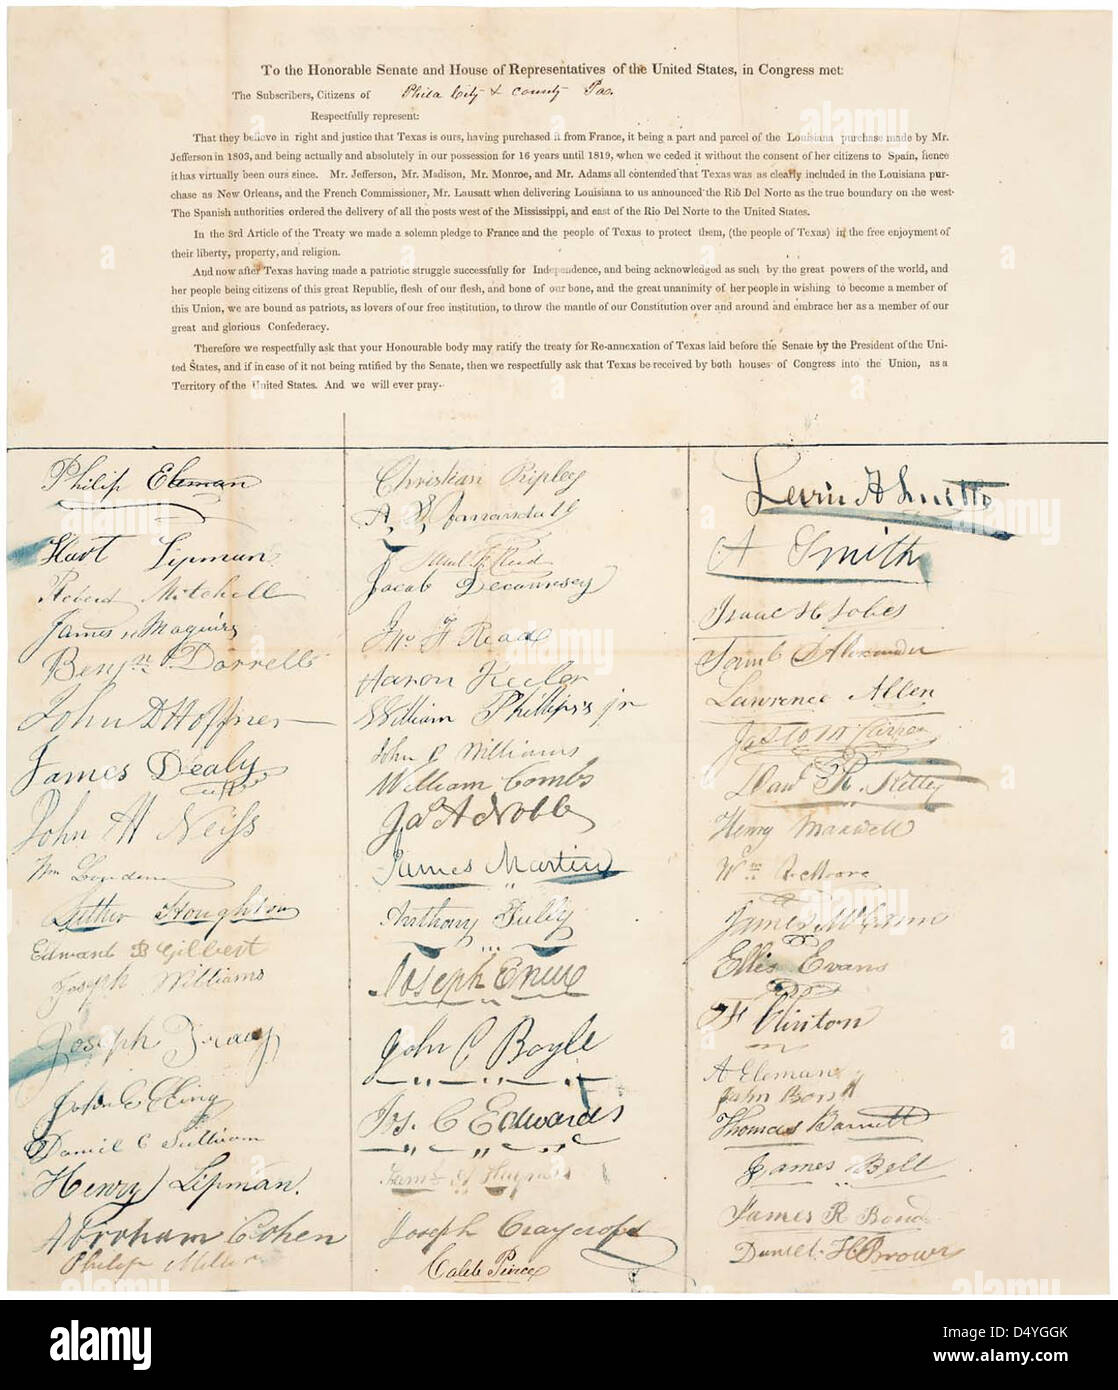 To the Honorable Senate and House of Representatives of the United States, in Congress met:
The Subscribers, Citizens of Phila City & County Pa.
Respectfully represent:
That they believe in right and justice that Texas is ours, having purchased it from France, it being a part and parcel of the Louisiana purchase made by Mr.
Jefferson in 1803, and being actually and absolutely in our possession for 16 years until 1819, when we ceded it without the consent of her citizens to Spain, hence
it has virtually been ours since. Mr. Jefferson, Mr. Madison, Mr. Monroe, and Mr. Adams all contended that Texas was as clearly included in the Louisiana pur-
chase as New Orleans, and the French Commissioner, Mr. Lausatt when delivering Louisiana to us announced the Rib Del Norte as the true boundary on the west.
The Spanish authorities ordered the delivery of all the posts west of the Mississippi, and east of the Rio Del Norte to the United States.
In the 3rd Article of the Treaty we made a solemn pledge to France and the people of Texas to protect them, (the people of Texas) in the free enjoyment of
their liberty, property, and religion.
And now after Texas having made a patriotic struggle successfully for Independence, and being acknowledged as such by the great powers of the world, and
her people being citizens of this great Republic, flesh of our flesh, and bone of our bone, and the great unanimity of her people in wishing to become a member of
this Union, we are bound as patriots, as lovers of our free institution, to throw the mantle of our Constitution over and around and embrace her as a member of our
great and glorious Confederacy.
Therefore we respectfully ask that your Honourable body may ratify the treaty for Re-annexation of Texas laid before the Senate by the President of the Uni-
ted States, and if in case of it not being ratified by the Senate, then we respectfully ask that Texas be received by both houses of Congress into the Union, as a
Territory of the United States. And we will ever pray.
Philip Eleman
Hart Lipman
Robert Mitchell
James Maguire
Benjn P. Dorrell
John D Hoffner
James Dealy
John H Neiss
Wm
Luther Houghton
Edward B Gilbert
Joseph Williams
Joseph
John C
Daniel C Sullivan
Henry Lipman.
Abraham Cohen
Philip Miller
Christian Ripley
A. V.
Reid
Jacob Decoursey
Jno F Read
Aaron Keeler
William Phillips jr
John C Williams
William Combs
Jas A Noble
James Martin
Anthony Tully
Joseph Enue
John C Boyle
Jos. C Edwards
Saml
Joseph Craycroft
Caleb Peirce
Levin H
A Smith
Isaac H Jobes
Saml Alexander
Lawrence Allen
Davd R. Kitty
Henry Maxwell
Wm Moore
James McCann
Ellis Evans
F Clinton
A Eleman
John
Thomas Barnett
James Bell
James R Bond
Daniel H Brown
alamy
Image ID: D4YGGK
www.alamy.com